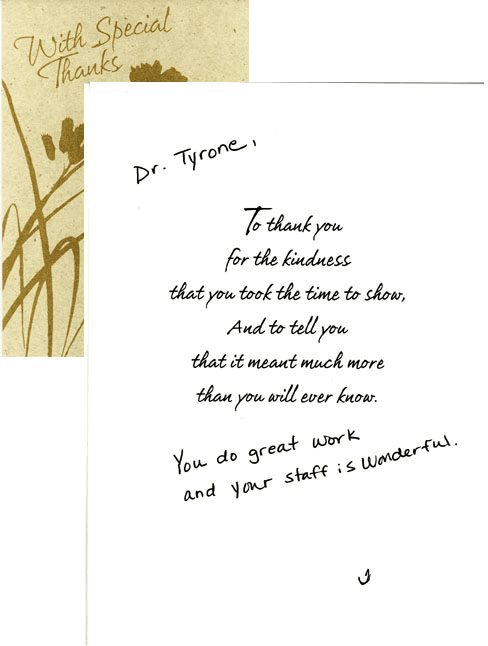 With Special
Thanks
Dr. Tyrone,
To thank you
for the kindness
that you took the time to show,
And to tell you
that it meant much more
than you will ever know.
You do great work
and your staff is wonderful.